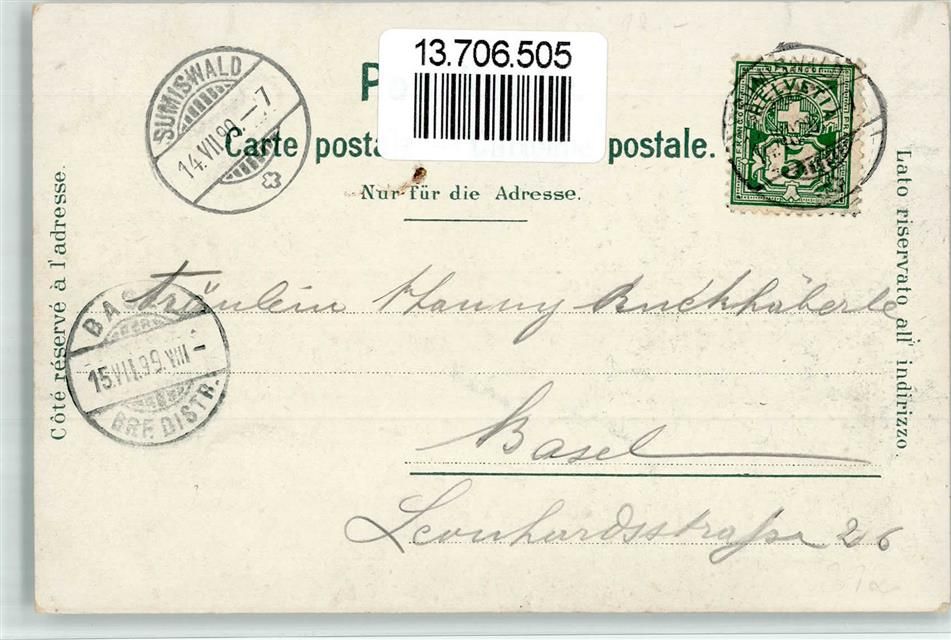 13.706.505
SUMISWALD
14.VII.99.–7
HELVETIA
5
Carte postale.
Nur für die Adresse.
Côté réservé à l'adresse.
Lato riservato all' indirizzo.
Fräulein Hanny Buckhäberle
BASEL
15.VII.99.VIII–
BRF. DISTR.
Basel
Leonhardsstraße 26